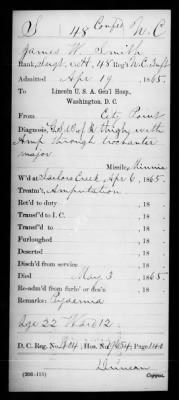 S 48 Confed N.C
James W. Smith
Rank, Sergt, Co H. 48 Reg't N.C. Inft
Admitted Apr 19, 1865.
To
Lincoln U. S. A. Gen'l Hosp.,
Washington, D. C.
From City Point
Diagnosis, of thigh, with
Amp through trochanter
major
Missile, Minnie
W'd at Sailors Creek, Apr 6, 1865.
Treatm't, Amputation
Ret'd to duty , 18 .
Transf'd to I. C. , 18 .
Transf'd to , 18 .
Furloughed , 18 .
Deserted , 18 .
Disch'd from service , 18 .
Died May 3, 1865.
Re-adm'd from furlo' or des'n , 18 .
Remarks: Pyaemia
Age 22 Ward 12
D. C. Reg. No. Hos. No. Page 142
Duncan
Copyist.